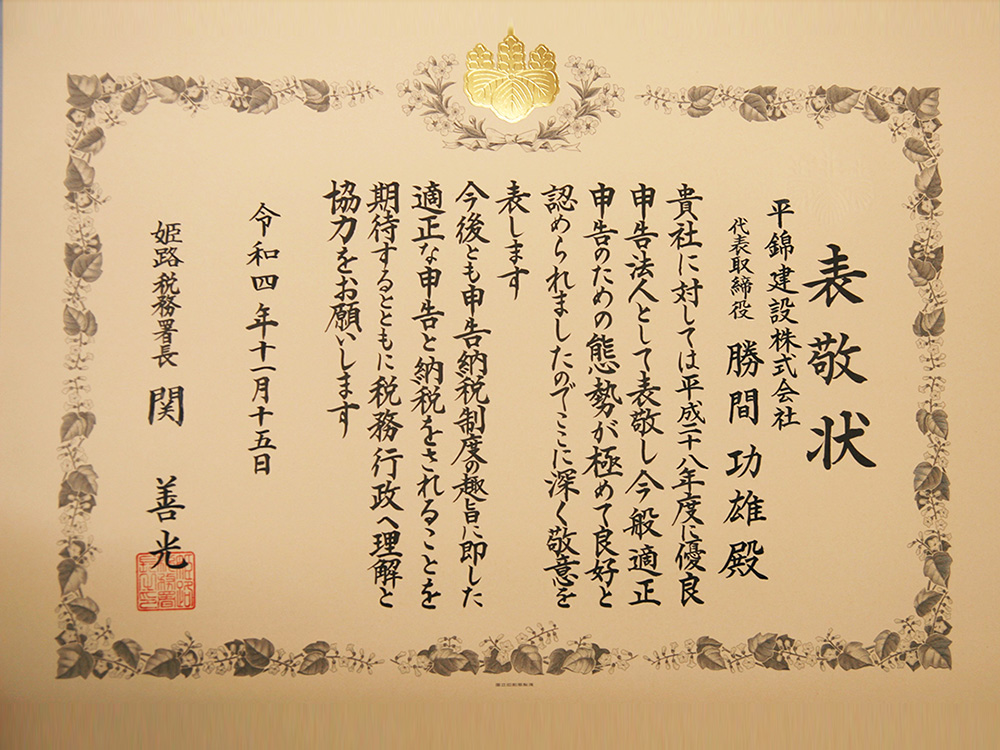 表敬状
平錦建設株式会社
代表取締役 勝間功雄殿
貴社に対しては平成二十八年度に優良
申告法人として表敬し今般適正
申告のための態勢が極めて良好と
認められましたのでここに深く敬意を
表します
今後とも申告納税制度の趣旨に即した
適正な申告と納税をされることを
期待するとともに税務行政へ理解と
協力をお願いします
令和四年十一月十五日
姫路税務署長 関 善光